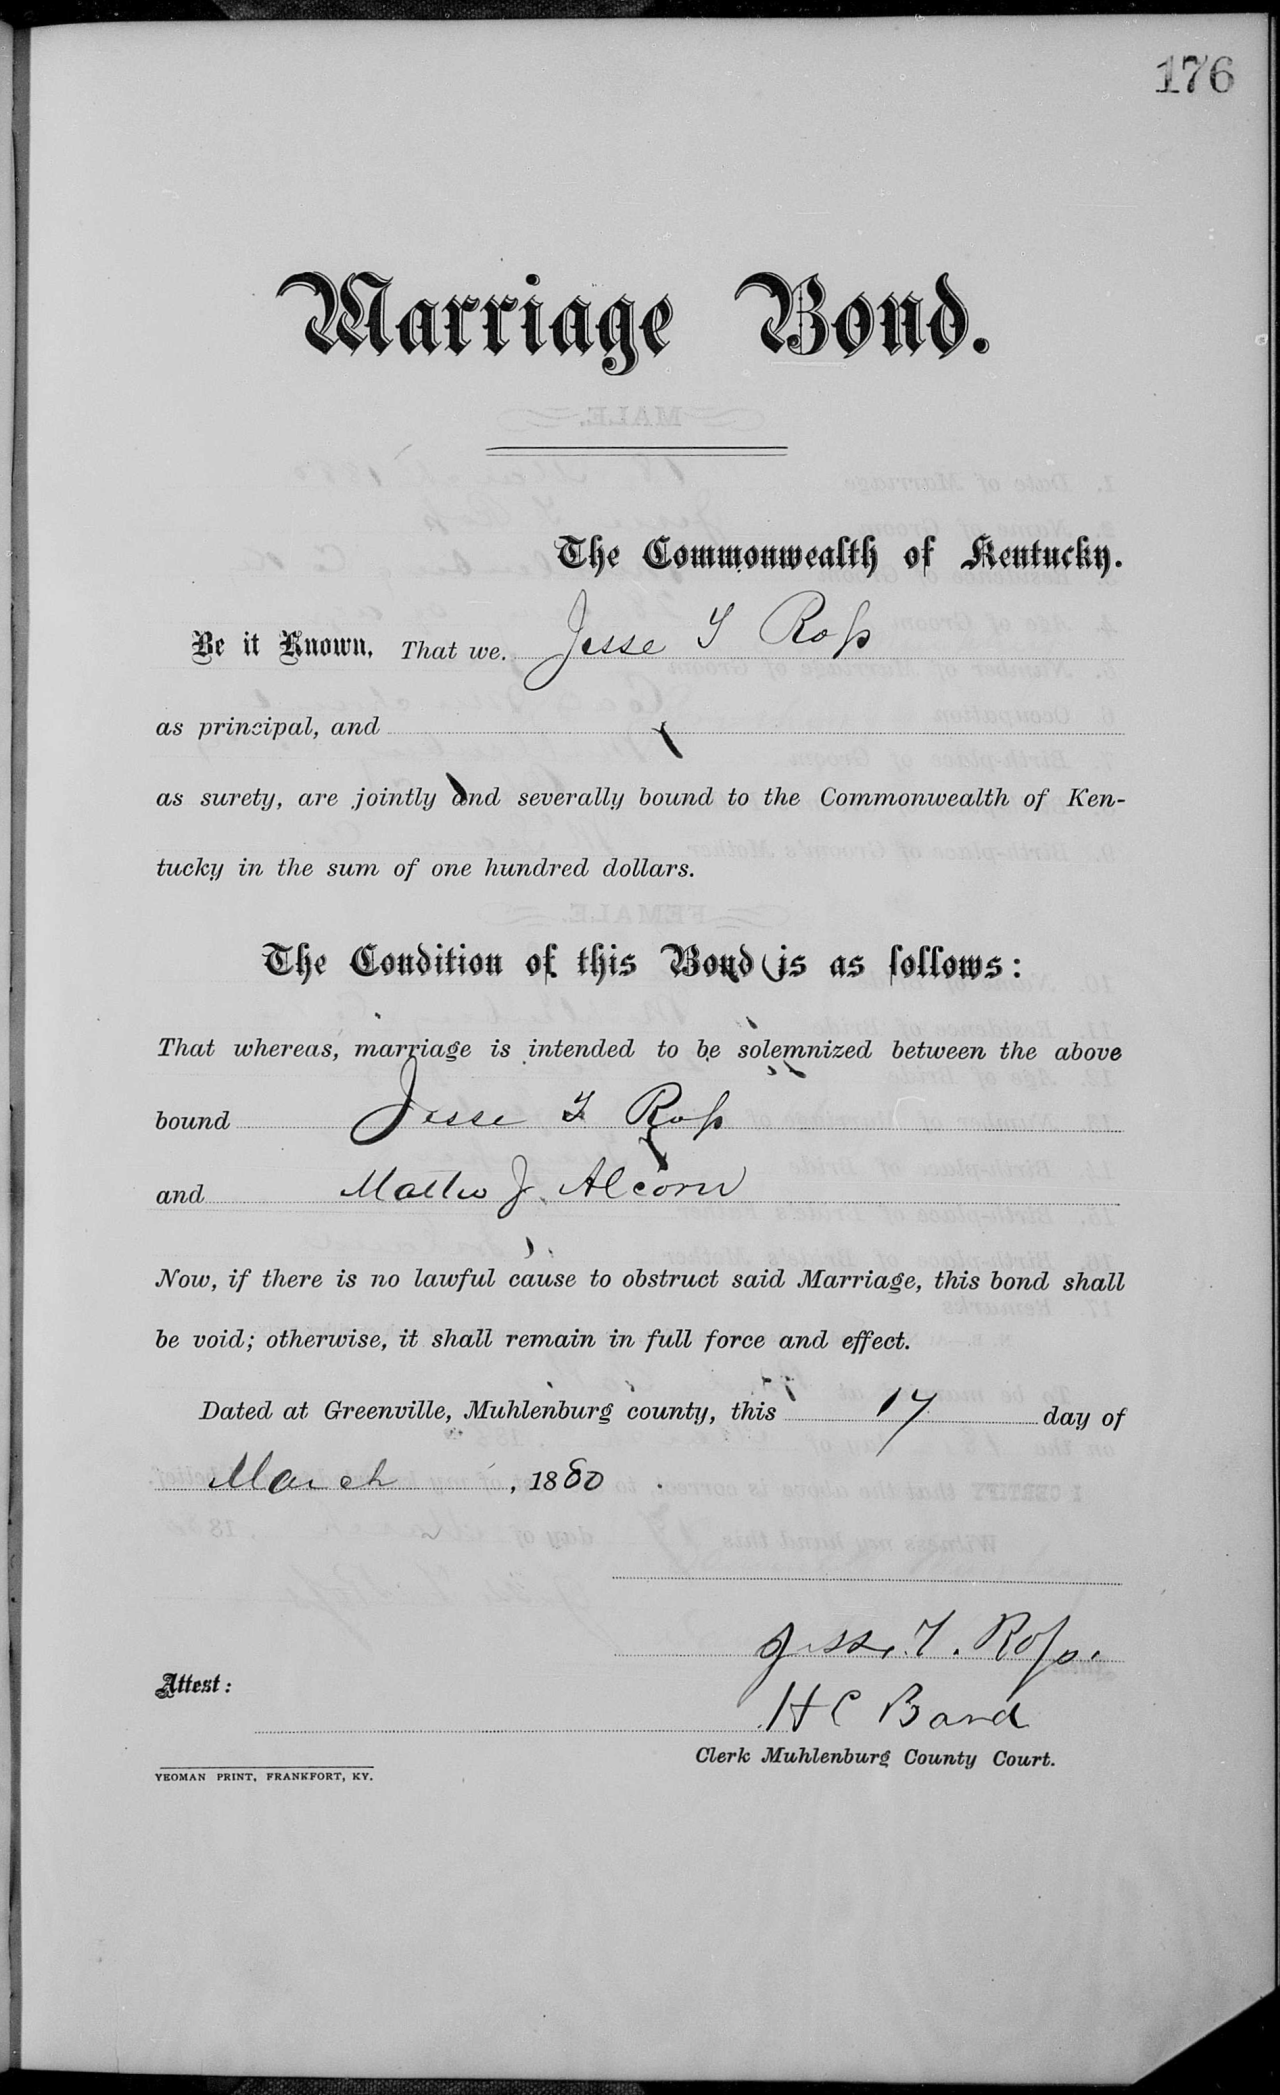 176
Marriage Bond.
The Commonwealth of Kentucky.
Be it Known, That we, Jesse T Ross
as principal, and
as surety, are jointly and severally bound to the Commonwealth of Ken-
tucky in the sum of one hundred dollars.
The Condition of this Bond is as follows:
That whereas, marriage is intended to be solemnized between the above
bound Jesse T Ross
and Mattie J. Alcorn
Now, if there is no lawful cause to obstruct said Marriage, this bond shall
be void; otherwise, it shall remain in full force and effect.
Dated at Greenville, Muhlenburg county, this 17 day of
March, 1880
Jesse T. Ross.
Attest:
H C Bard
Clerk Muhlenburg County Court.
YEOMAN PRINT, FRANKFORT, KY.